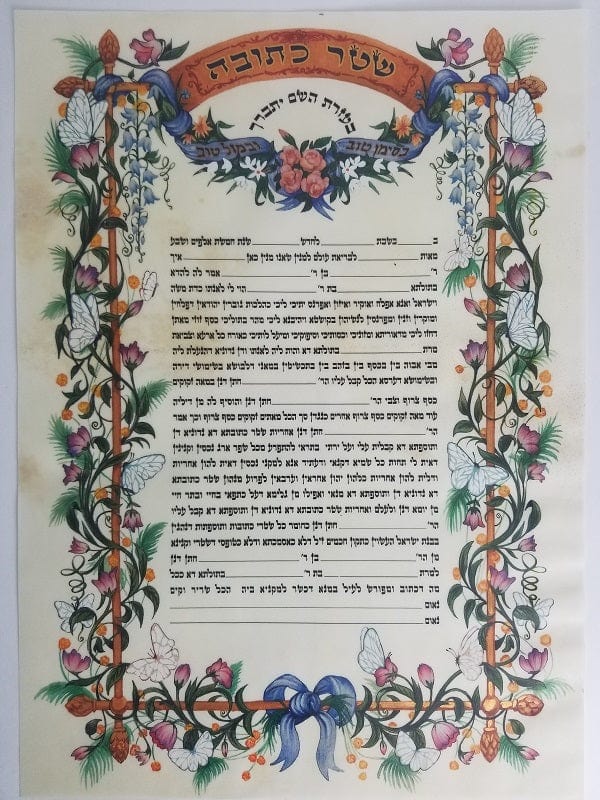 שטר כתובה
בעזרת השם יתברך
בסימן טוב ובמזל טוב
ב__________ בשבת __________ לחדש __________ שנת חמשת אלפים ושבע
מאות __________ לבריאת עולם למנין שאנו מנין כאן __________ איך
ר' __________ בן ר' __________ אמר לה להדא
בתולתא __________ בת ר' __________ הוי לי לאנתו כדת משה
וישראל ואנא אפלח ואוקיר ואיזון ואפרנס יתיכי ליכי כהלכות גוברין יהודאין דפלחין
ומוקרין וזנין ומפרנסין לנשיהון בקושטא ויהיבנא ליכי מהר בתוליכי כסף זוזי מאתן
דחזו ליכי מדאוריתא ומזוניכי וכסותיכי וסיפוקיכי ומיעל לותיכי כאורח כל ארעא וצביאת
מרת __________ בתולתא דא והות ליה לאנתו ודן נדוניא דהנעלת ליה
מבי אבוה בין בכסף בין בזהב בין בתכשיטין במאני דלבושא בשימושי דירה
ובשימושא דערסא הכל קבל עליו הר' __________ חתן דנן במאה זקוקים
כסף צרוף וצבי הר' __________ חתן דנן והוסיף לה מן דיליה
עוד מאה זקוקים כסף צרוף אחרים כנגדן סך הכל מאתים זקוקים כסף צרוף וכך אמר
הר' __________ חתן דנן אחריות שטר כתובתא דא נדוניא דן
ותוספתא דא קבלית עלי ועל ירתי בתראי להתפרע מכל שפר ארג נכסין וקנינין
דאית לי תחות כל שמיא דקנאי ודעתיד אנא למקני נכסין דאית להון אחריות
ודלית להון אחריות כלהון יהון אחראין וערבאין לפרוע מנהון שטר כתובתא
דא נדוניא דן ותוספתא דא מנאי ואפילו מן גלימא דעל כתפאי בחיי ובתר חיי
מן יומא דנן ולעלם ואחריות שטר כתובתא דא נדוניא דן ותוספתא דא קבל עליו
הר' __________ חתן דנן כחומר כל שטרי כתובות ותוספתות דנהגין
בבנת ישראל העשוין כתקון חכמים ז"ל דלא כאסמכתא ודלא כטופסי דשטרי וקנינא
מן הר' __________ בן ר' __________ חתן דנן
למרת __________ בת ר' __________ בתולתא דא ככל
מה דכתוב ומפורש לעיל במנא דכשר למקניא ביה הכל שריר וקים
נאום __________
נאום __________